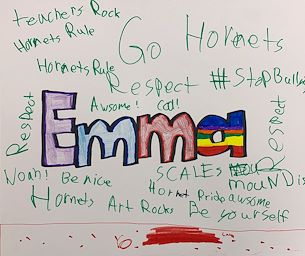 teachers Rock
Hornets Rule
Go Hornets
Hornets Rule
Respect #StopBully
Awsome! Cool!
Respect
Emma
Noah! Be nice
SCALES
mouNDis
Hornet Pride awsome
Hornets Art Rocks Be yourself